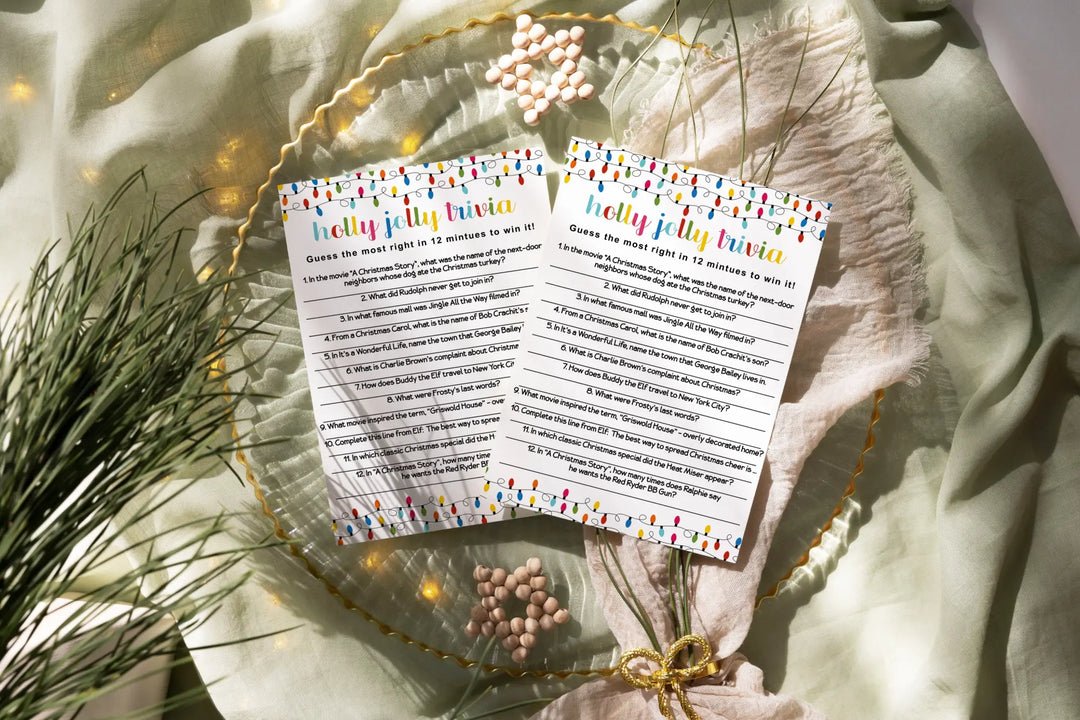 holly jolly trivia
Guess the most right in 12 mintues to win it!
1. In the movie "A Christmas Story", what was the name of the next-door
neighbors whose dog ate the Christmas turkey?
2. What did Rudolph never get to join in?
3. In what famous mall was Jingle All the Way filmed in?
4. From a Christmas Carol, what is the name of Bob Crachit's s
5. In It's a Wonderful Life, name the town that George Bailey
6. What is Charlie Brown's complaint about Christm
7. How does Buddy the Elf travel to New York Ci
8. What were Frosty's last words?
9. What movie inspired the term, "Griswold House" – overly
10. Complete this line from Elf: The best way to spread
11. In which classic Christmas special did the H
12. In "A Christmas Story", how many times
he wants the Red Ryder BB
holly jolly trivia
Guess the most right in 12 mintues to win it!
1. In the movie "A Christmas Story", what was the name of the next-door
neighbors whose dog ate the Christmas turkey?
2. What did Rudolph never get to join in?
3. In what famous mall was Jingle All the Way filmed in?
4. From a Christmas Carol, what is the name of Bob Crachit's son?
5. In It's a Wonderful Life, name the town that George Bailey lives in.
6. What is Charlie Brown's complaint about Christmas?
7. How does Buddy the Elf travel to New York City?
8. What were Frosty's last words?
9. What movie inspired the term, "Griswold House" – overly decorated home?
10. Complete this line from Elf: The best way to spread Christmas cheer is ...
11. In which classic Christmas special did the Heat Miser appear?
12. In "A Christmas Story", how many times does Ralphie say
he wants the Red Ryder BB Gun?